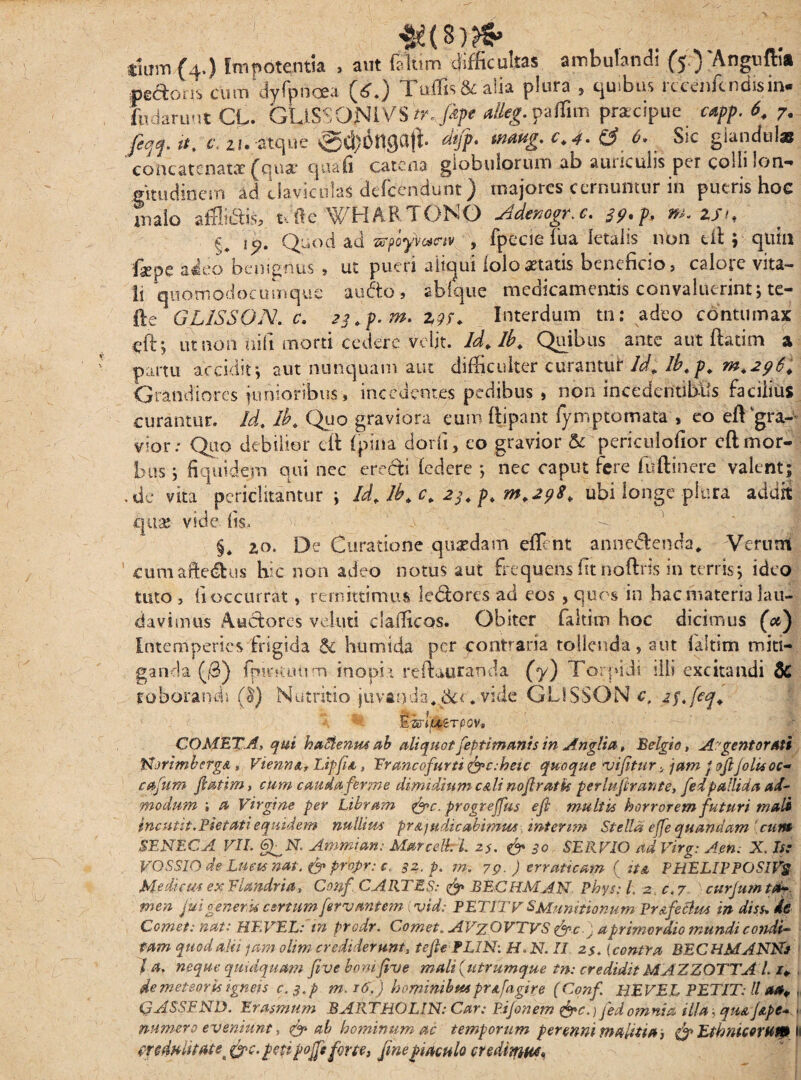 (8)
tium (4.) Impotentia , aut saltim difficultas ambulandi (5.) Angustia
pectoris cum dyspnoea (6.) Tussis & alia plura , quibus recensendis in-
sudarunt CL. GLISSONIVS tr. sæpe alleg. passim præcipue capp. 6. 7.
seqq. it. c. 21. atque Schönngast. disp. inaug. c. 4. & 6. Sic glandulæ
concatenatæ (quæ quasi catena globulorum ab auriculis per colli lon-
gitudinem ad claviculas descendunt) majores cernuntur in pueris hoc
malo afflictis, teste WHARTONO Adenogr. c. 39. p. m. 251.
§. 19. Quod ad πρόγνωσιν , specie sua letalis non est ; quin
sæpe adeo benignus , ut pueri aliqui solo ætatis beneficio, calore vita-
li quomodocumque aucto, absque medicamentis convaluerint; te-
ste GLISSON. c. 23. p. m. 295. Interdum tn: adeo contumax
est; ut non nisi morti cedere velit. Id. Ib. Quibus ante aut statim a
partu accidit; aut nunquam aut difficulter curantur Id. Ib. p. m. 296.
Grandiores junioribus, incedentes pedibus , non incedentibus facilius
curantur. Id. Ib. Quo graviora eum stipant symptomata , eo est gra-
vior: Quo debilior est spina dorsi, eo gravior & periculosior est mor-
bus ; siquidem qui nec erecti sedere ; nec caput fere sustinere valent;
de vita periclitantur ; Id. Ib. c. 23. p. m. 298. ubi longe plura addit
quæ vide sis.
§. 20. De Curatione quædam essent annectenda. Verum
cum affectus hic non adeo notus aut frequens sit nostris in terris; ideo
tuto , si occurrat , remittimus lectores ad eos , quos in hac materia lau-
davimus Auctores veluti classicos. Obiter saltim hoc dicimus (α)
Intemperies frigida & humida per contraria tollenda, aut saltim miti-
ganda (β) spirituum inopia restauranda (γ) Torpidi illi excitandi &
roborandi (δ) Nutritio juvanda. &c. vide GLISSON c. 25. seq.
Ἐπίμετρον.
COMETA, qui hactenus ab aliquot septimanis in Anglia, Belgio, Argentorati
Norimbergæ, Viennæ, Lipsiæ, Francofurti &c: heic quoque visitur, jam post solis oc-
casum statim, cum cauda ferme dimidium cæli nostratis perlustrante, sed pallida ad-
modum ; a Virgine per Libram &c. progressus est multis horrorem futuri mali
incutit. Pietati equidem nullius præjudicabimus; interim Stellā esse quandam (cum
SENECA VII. Q. N. Ammian: Marcell: l. 25. & 30 SERVIO ad Virg: Aen: X. Is:
VOSSIO de Lucis nat. & propr: c. 32. p. m. 79. ) erraticam ( ita PHELIPPOSIVS
Medicus ex Flandria, Conf. CARTES: & BECHMAN. Phys: l. 2. c. 7. cursum ta-
men sui generis certum servantem (vid: PETITV SMunitionum Præfectus in diss. de
Comet: nat: HEVEL: in prodr. Comet. AVZOVTVS &c.) a primordio mundi condi-
tam quod alii jam olim crediderunt, teste PLIN: H. N. II 25. (contra BECHMANN:
l a. neque quidquam sive boni sive mali (utrumque tn: credidit MAZZOTTA l. 1.
de meteoris igneis c. 3. p m. 16.) hominibus præsagire (Conf. HEVEL PETIT: ll aa.
GASSEND. Erasmum BARTHOLIN: Car: Pisonem &c.) sed omnia illa, quæ sæpe-
numero eveniunt, & ab hominum ac temporum perenni malitia, & Ethnicorum
credulitate &c. peti posse forte, sine piaculo credimus.